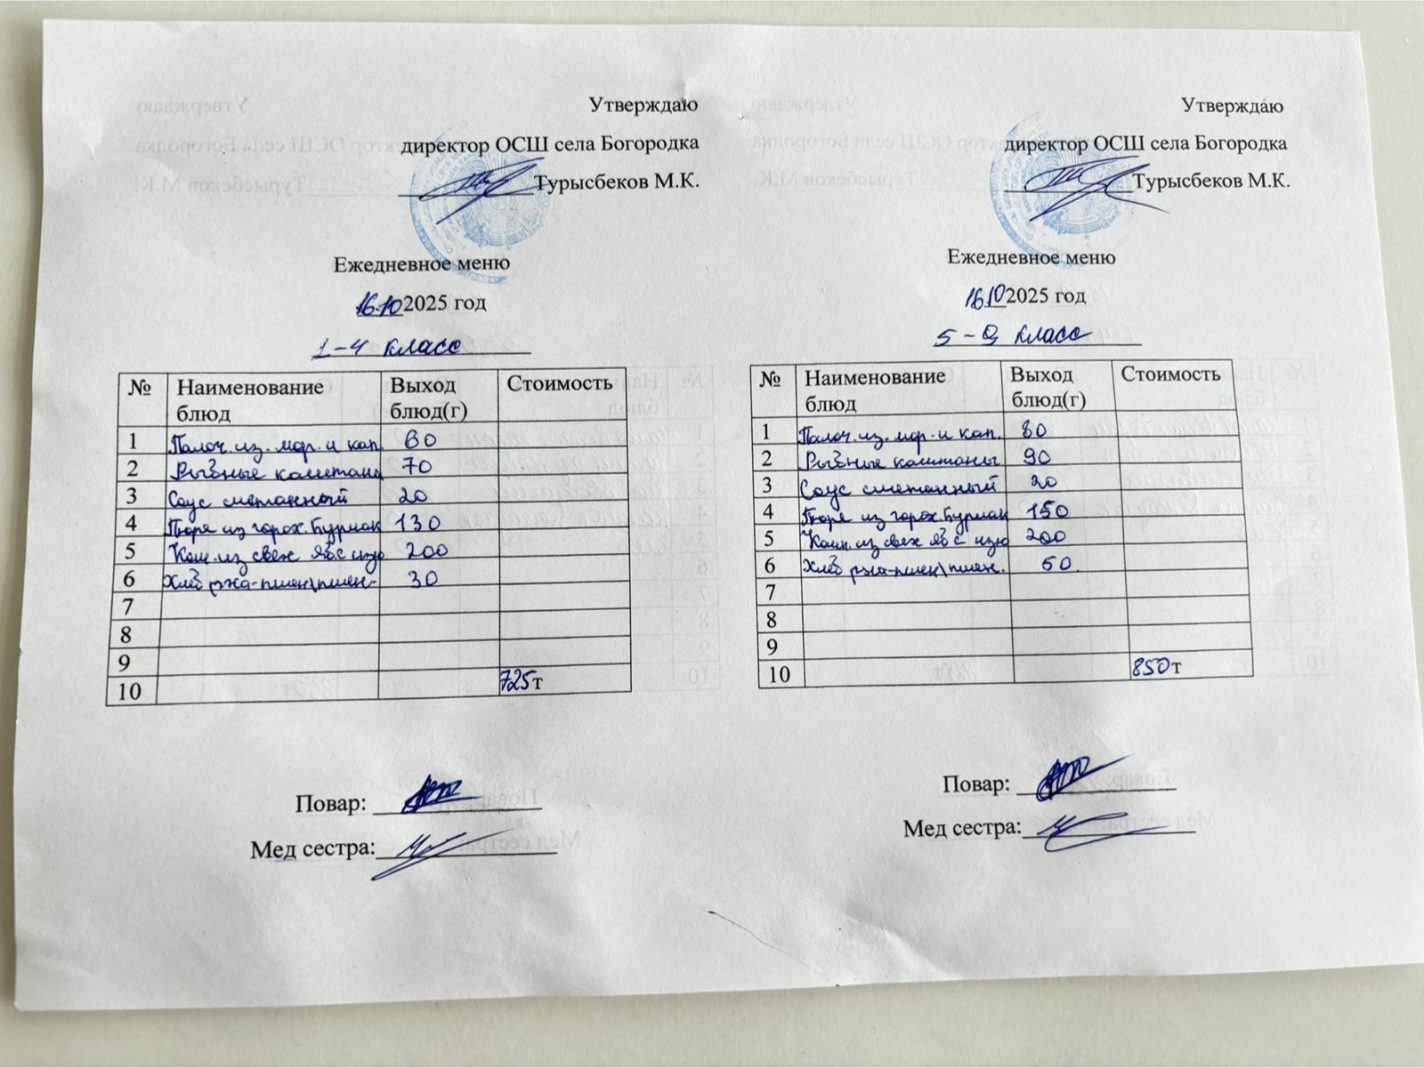 Утверждаю
директор ОСШ села Богородка
Турысбеков М.К.
Ежедневное меню
16.10 2025 год
1-4 класс
№ Наименование блюд Выход блюд(г) Стоимость
1 Палоч. из. мор. и кап. 60
2 Рыбные каштаны 70
3 Соус сметанный 20
4 Пюре из горох. Бурмак 130
5 Комп. из свеж яб с изю 200
6 Хлеб ржа-пшен\пшен- 30
7
8
9
10 725т
Повар:
Мед сестра:
Утверждаю
директор ОСШ села Богородка
Турысбеков М.К.
Ежедневное меню
16 10 2025 год
5-9 класс
№ Наименование блюд Выход блюд(г) Стоимость
1 Палоч. из. мор. и кап. 80
2 Рыбные каштаны 90
3 Соус сметанный 20
4 Пюре из горох. Бурмак 150
5 Комп. из свеж яб с изю 200
6 Хлеб ржа-пшен\пшен. 50.
7
8
9
10 850т
Повар:
Мед сестра: